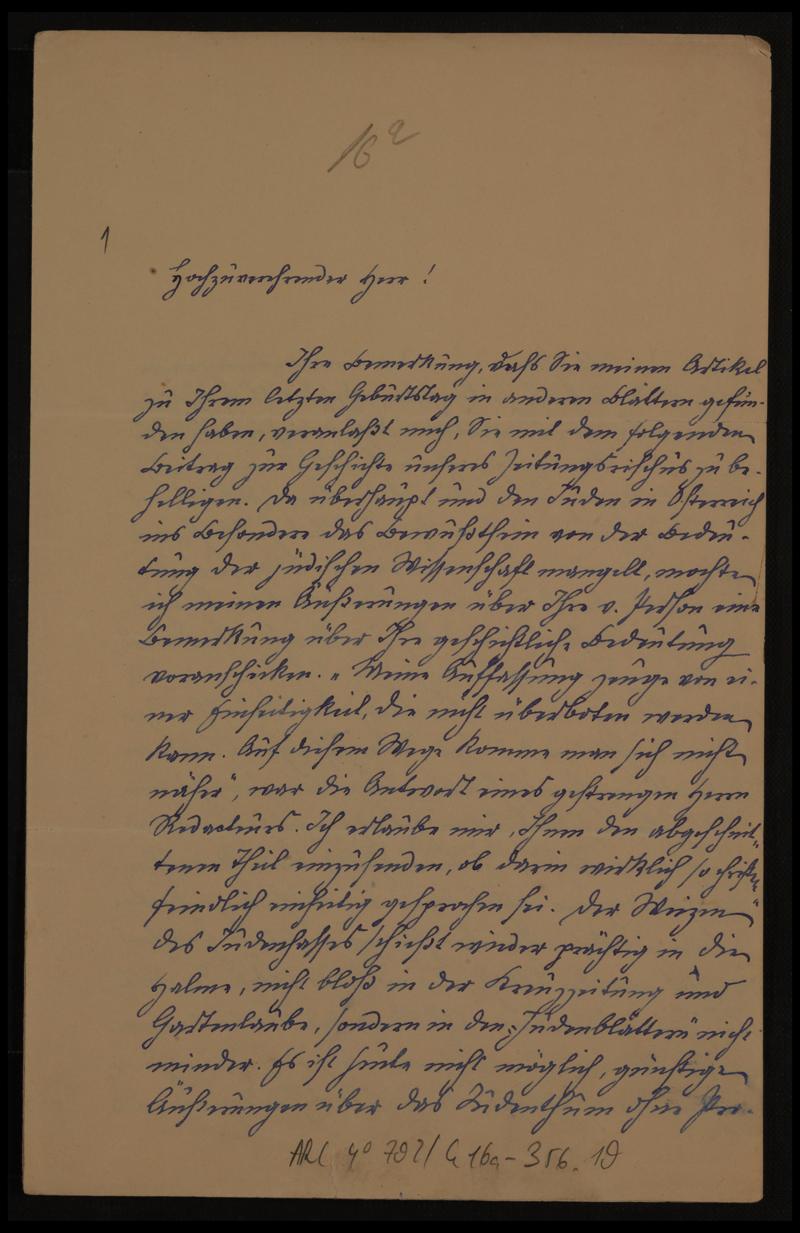 16a
1
Hochzuverehrender Herr!
Ihre Bemerkung, dafs Sie meinen Artikel
zu Ihrem letzten Geburtstag in anderen Blättern gefun-
den haben, veranlaßt mich, Sie mit dem folgenden
Beitrag zur Geschichte unseres Zeitungsrischus zu be-
helligen. Da überhaupt und den Juden in Österreich
ins Besondere das Bewußtsein von der Bedeu-
tung der jüdischen Wissenschaft mangelt, mochte
ich meinen Äußerungen über Ihre v. Person eine
Bemerkung über Ihre geschichtliche Bedeutung
voranschicken. „Meine Auffassung zeuge von ei-
ner Einseitigkeit, die nicht überboten werden
kann. Auf diesem Wege komme man sich nicht
näher", war die Antwort eines gestrengen Herrn
Redacteurs. Ich erlaube mir, Ihnen den abgeschnit-
tenen Theil einzusenden, ob darin wirklich so christen-
feindlich einseitig gesprochen sei. Der Weizen
des Judenhasses schießt wieder prächtig in die
Halme, nicht bloß in der Kreuzzeitung und
Gartenlaube, sondern in den „Judenblättern" nicht
minder. Es ist heute nicht möglich, günstige
Äußerungen über das Judenthum ohne Pro-
ARC 4° 792/ G 16a-356.19